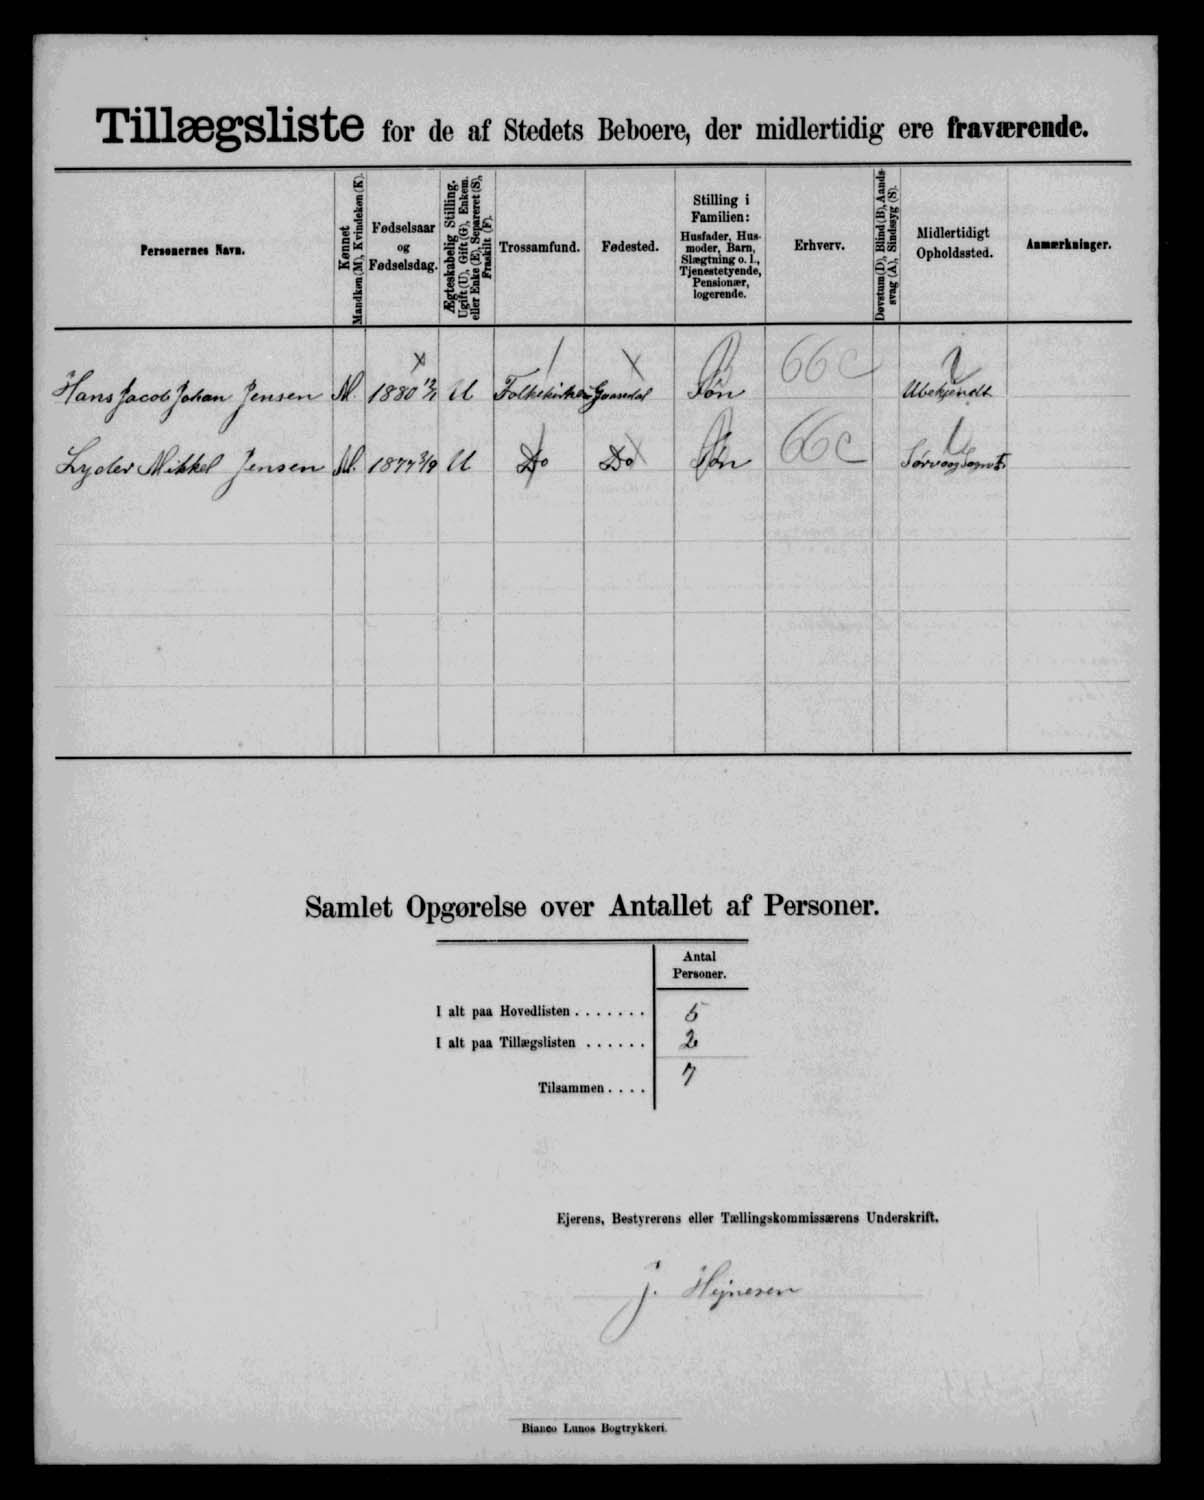 Tillægsliste for de af Stedets Beboere, der midlertidig ere fraværende.
Personernes Navn.
Kønnet
Mandkøn (M), Kvindekøn (K).
Fødselsaar
og
Fødselsdag.
Ægteskabelig Stilling.
Ugift (U), Gift (G), Enkem.
eller Enke (E), Separeret (S),
Fraskilt (F).
Trossamfund.
Fødested.
Stilling i
Familien:
Husfader, Hus-
moder, Barn,
Slægtning o. l.,
Tjenestetyende,
Pensionær,
logerende.
Erhverv.
Døvstum (D), Blind (B), Aands-
svag (A), Sindssyg (S).
Midlertidigt
Opholdssted.
Anmærkninger.
Hans Jacob Johan Jensen M. 1880 U Folkekirken Gaasedal Søn 66 c Ubekjendt
Lyder Mikkel Jensen M. 1877 2/9 U Do Do Søn 66 c
Samlet Opgørelse over Antallet af Personer.
Antal
Personer.
I alt paa Hovedlisten . . . . . . . 5
I alt paa Tillægslisten . . . . . . 2
Tilsammen . . . . 7
Ejerens, Bestyrerens eller Tællingskommissærens Underskrift.
J. Hejnesen
Bianco Lunos Bogtrykkeri.